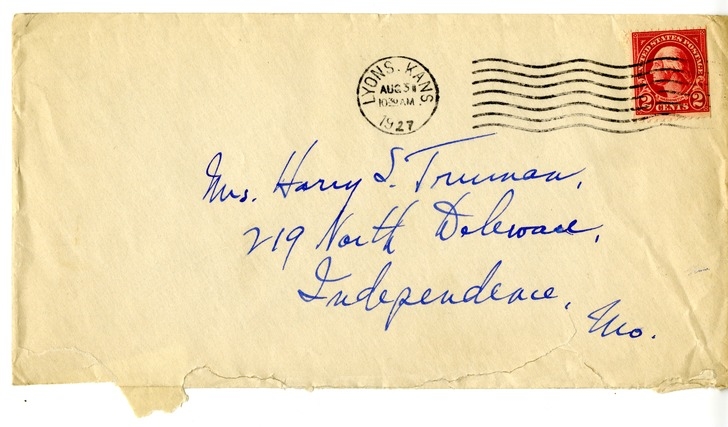 LYONS. KANS
AUG 31
1030 AM
1927
UNITED STATES POSTAGE
2 CENTS 2
Mrs. Harry S. Truman,
219 North Delaware,
Independence,
Mo.